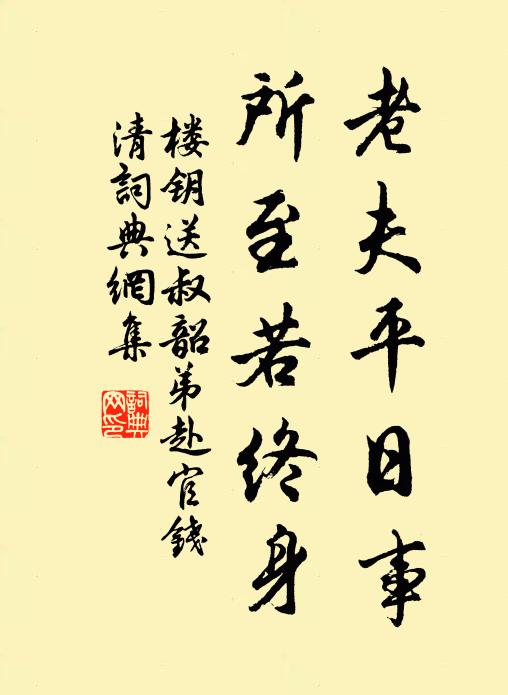 老夫平日事
所至若终身
楼钥送叔韶弟赴官钱
清詞典網集
詞典
网印